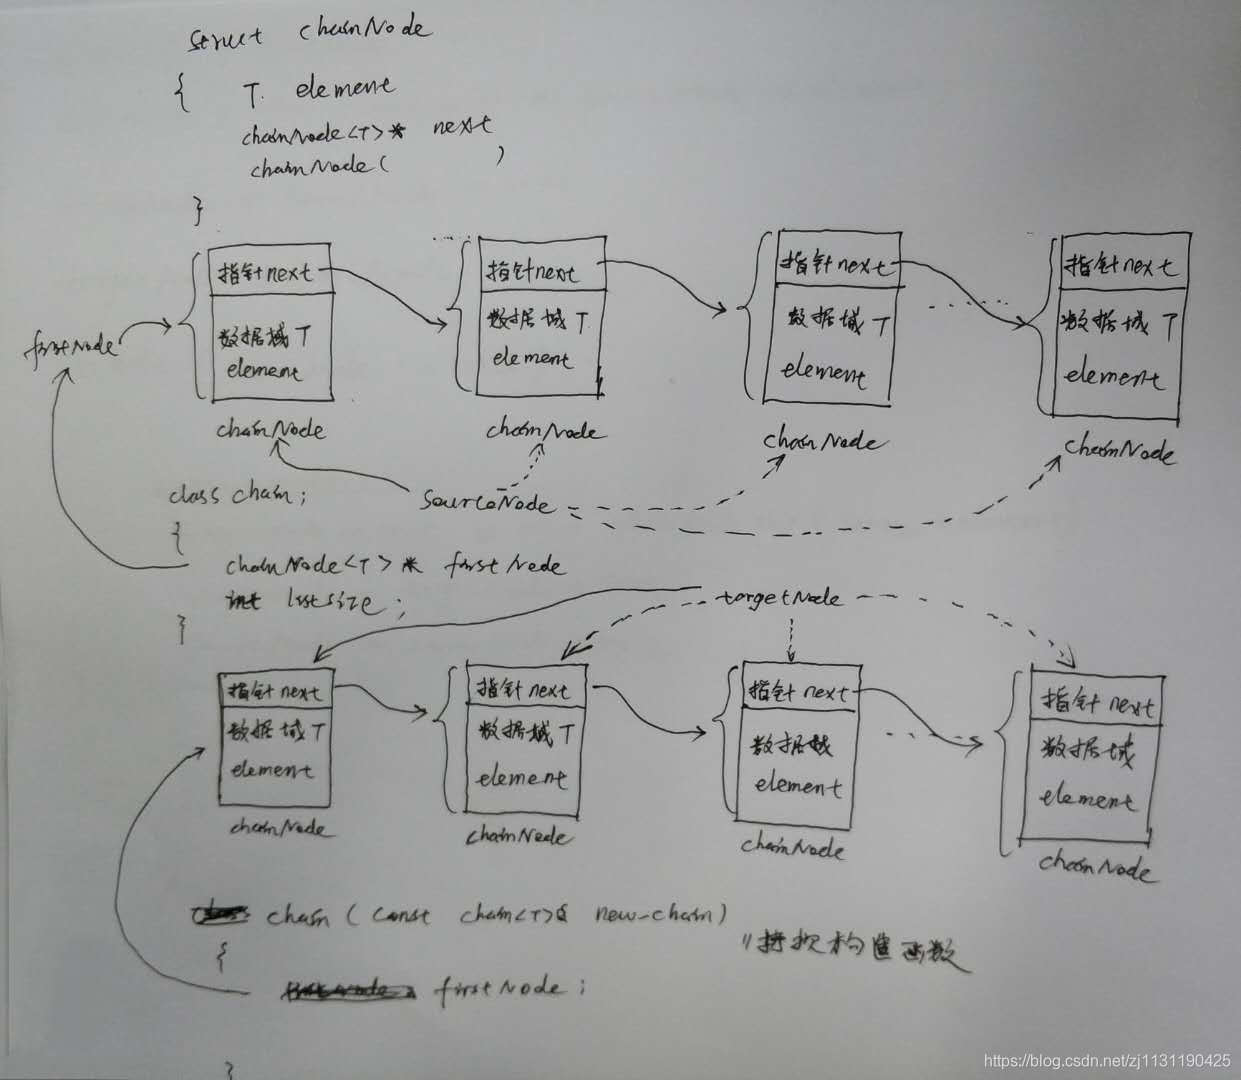 struct chainNode
{ T. element
chainNode<T>* next
chainNode( )
}
指针next 指针next 指针next 指针next
数据域T 数据域T 数据域T 数据域T
firstNode
element element element element
chainNode chainNode chainNode chainNode
class chain; sourceNode
{
chainNode<T>* firstNode
int listsize; targetNode
}
指针next 指针next 指针next 指针next
数据域T 数据域T 数据域 数据域
element element element element
chainNode chainNode chainNode chainNode
chain (const chain<T>& new-chain)
{ //拷贝构造函数
firstNode;
}
https://blog.csdn.net/zj1131190425